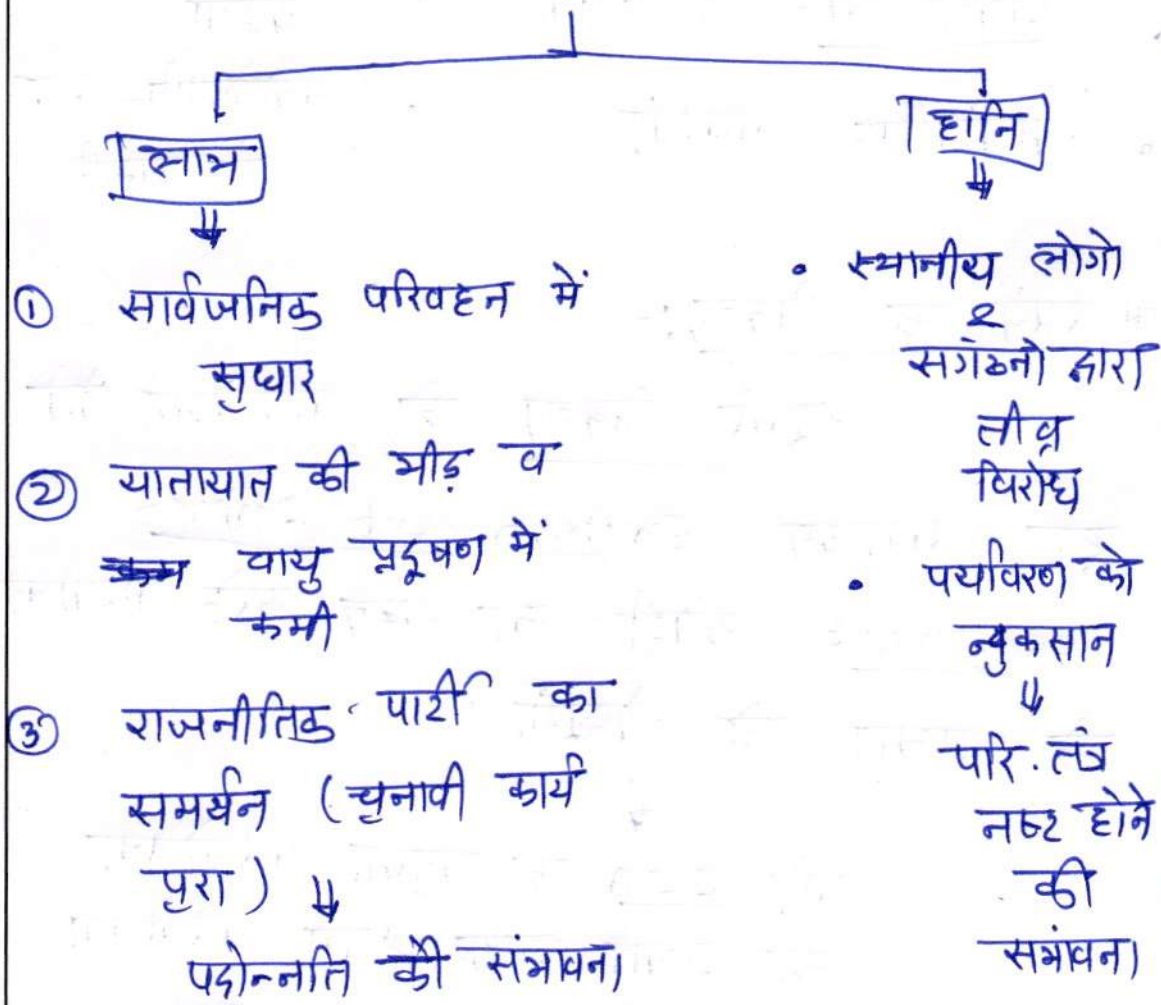 लाभ
① सार्वजनिक परिवहन में
सुधार
② यातायात की भीड़ व
वायु प्रदूषण में
कमी
③ राजनीतिक पार्टी का
समर्थन (चुनावी कार्य
पुरा)
पदोन्नति की संभावना
हानि
• स्थानीय लोगो
&
सगंठनो द्वारा
तीव्र
विरोध
• पर्यावरण को
नुकसान
परि. तंत्र
नष्ट होने
की
सभांवना